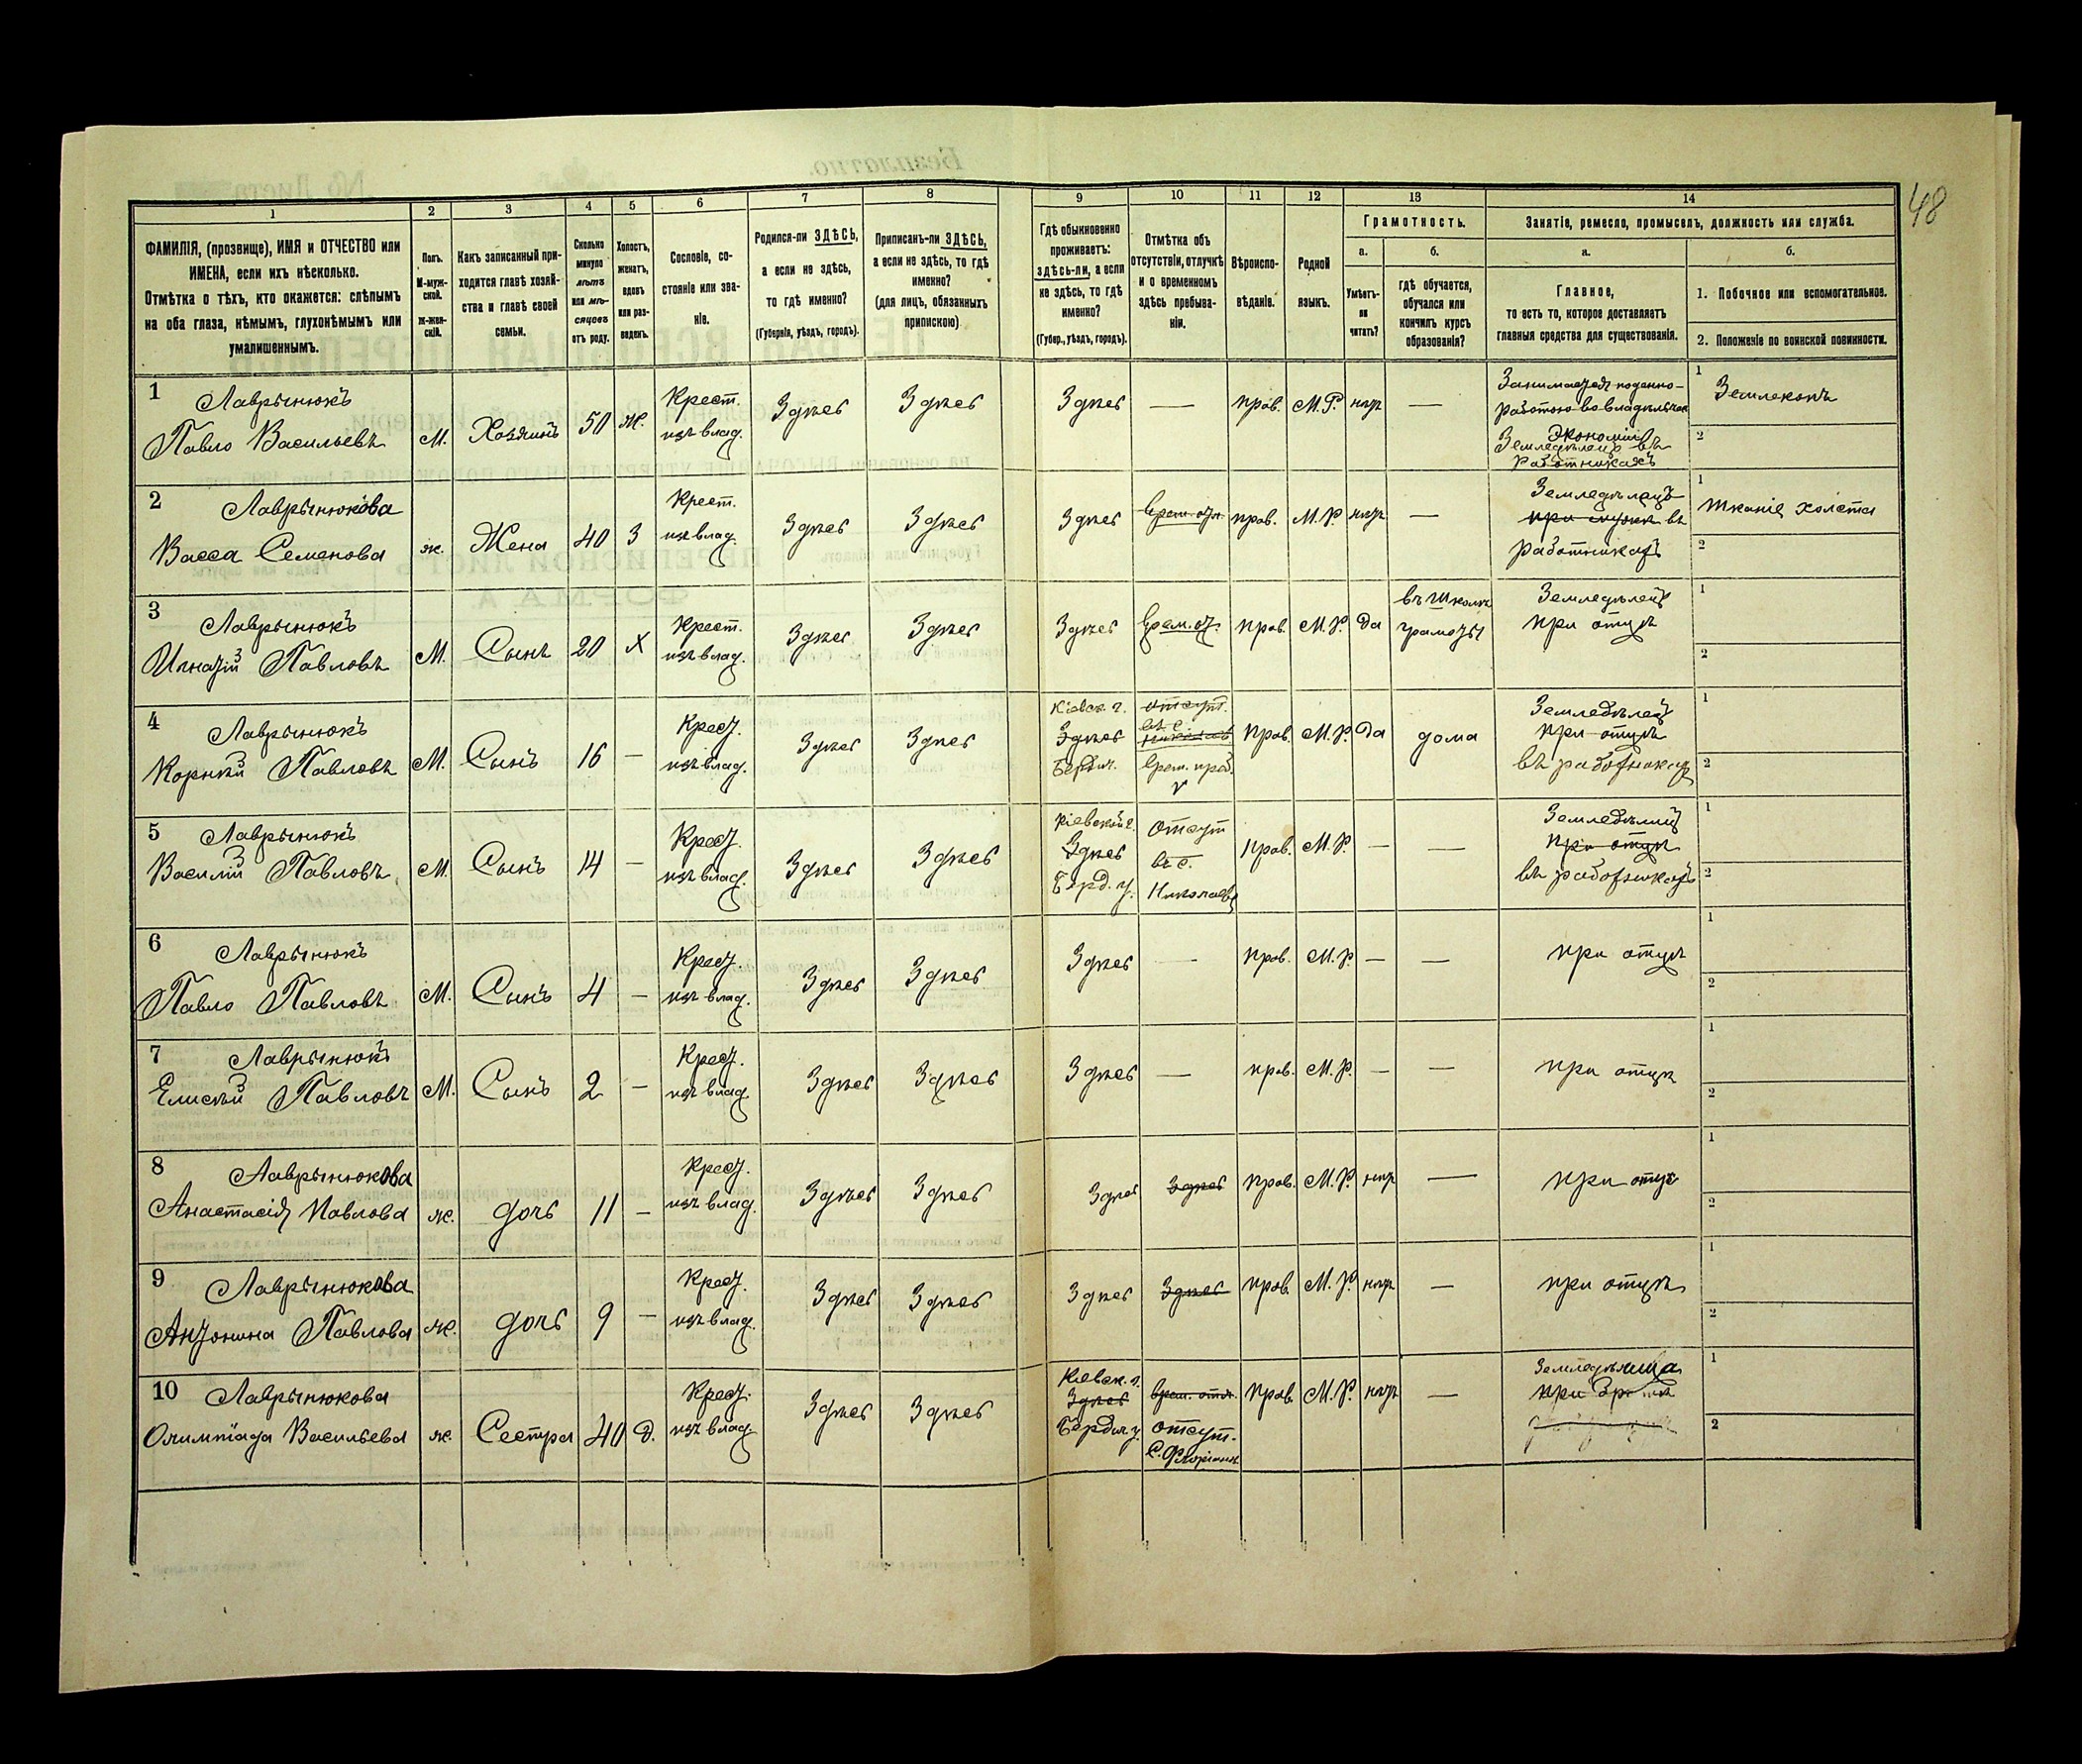 48
1
2
3
4
5
6
7
8
9
10
11
12
13
14
ФАМИЛІЯ, (прозвище), ИМЯ и ОТЧЕСТВО или
ИМЕНА, если ихъ нѣсколько.
Отмѣтка о тѣхъ, кто окажется: слѣпымъ
на оба глаза, нѣмымъ, глухонѣмымъ или
умалишеннымъ.
Полъ.
М-муж-
ской.
Ж-жен-
скій.
Какъ записанный при-
ходится главѣ хозяй-
ства и главѣ своей
семьи.
Сколько
минуло
лѣтъ
или мѣ-
сяцевъ
отъ роду.
Холостъ,
женатъ,
вдовъ
или раз-
веденъ.
Сословіе, со-
стояніе или зва-
ніе.
Родился-ли ЗДѢСЬ,
а если не здѣсь,
то гдѣ именно?
(Губернія, уѣздъ, городъ).
Приписанъ-ли ЗДѢСЬ,
а если не здѣсь, то гдѣ
именно?
(для лицъ, обязанныхъ
припискою)
Гдѣ обыкновенно
проживаетъ:
здѣсь-ли, а если
не здѣсь, то гдѣ
именно?
(Губер., уѣздъ, городъ).
Отмѣтка объ
отсутствіи, отлучкѣ
и о временномъ
здѣсь пребыва-
ніи.
Вѣроиспо-
вѣданіе.
Родной
языкъ.
Грамотность.
а.
Умѣетъ-
ли
читать?
б.
гдѣ обучается,
обучался или
кончилъ курсъ
образованія?
Занятіе, ремесло, промыселъ, должность или служба.
а.
Главное,
то есть то, которое доставляетъ
главныя средства для существованія.
б.
1. Побочное или вспомогательное.
2. Положеніе по воинской повинности.
1 Лаврынюкъ
Павло Васильевъ М. Хозяинъ 50 ж. Крест. изъ влад. Здѣсь Здѣсь Здѣсь — прав. М.Р. нѣтъ —
Занимается поденно-
работою во владѣльчес
Экономіи
Земледѣлецъ въ
работникахъ
1 Землекопъ
2
2 Лаврынюкова
Васса Семенова ж. Жена 40 З Крест. изъ влад. Здѣсь Здѣсь Здѣсь врем. от. прав. М.Р. нѣтъ —
Земледѣлецъ
при мужѣ въ
работникахъ
1 тканіе холста
2
3 Лаврынюкъ
Игнатій Павловъ М. Сынъ 20 Х Крест. изъ влад. Здѣсь Здѣсь Здѣсь врем. от. прав. М.Р. да въ школѣ грамоты
Земледѣлецъ
при отцѣ
1
2
4 Лаврынюкъ
Корнѣй Павловъ М. Сынъ 16 — Крест. изъ влад. Здѣсь Здѣсь
Кіевск. г.
Здѣсь
Бердич.
отсут.
въ с.
врем. преб.
прав. М.Р. да дома
Земледѣлец
при отцѣ
въ работникахъ
1
2
5 Лаврынюкъ
Василій Павловъ М. Сынъ 14 — Крест. изъ влад. Здѣсь Здѣсь
Кіевской г.
Здѣсь
Берд. у.
Отсут
въ с.
прав. М.Р. — —
Земледѣлец
при отцѣ
въ работникахъ
1
2
6 Лаврынюкъ
Павло Павловъ М. Сынъ 4 — Крест. изъ влад. Здѣсь Здѣсь Здѣсь — прав. М.Р. — — при отцѣ
1
2
7 Лаврынюкъ
Елисѣй Павловъ М. Сынъ 2 — Крест. изъ влад. Здѣсь Здѣсь Здѣсь — прав. М.Р. — — при отцѣ
1
2
8 Лаврынюкова
Анастасія Павлова ж. дочь 11 — Крест. изъ влад. Здѣсь Здѣсь Здѣсь Здѣсь прав. М.Р. нѣтъ — при отцѣ
1
2
9 Лаврынюкова
Антонина Павлова ж. дочь 9 — Крест. изъ влад. Здѣсь Здѣсь Здѣсь Здѣсь прав. М.Р. нѣтъ — при отцѣ
1
2
10 Лаврынюкова
Олимпіада Васильева ж. Сестра 40 д. Крест. изъ влад. Здѣсь Здѣсь
Кіевск. г.
Здѣсь
Бердич у.
врем. отл.
отсут.
прав. М.Р. нѣтъ —
при
1
2